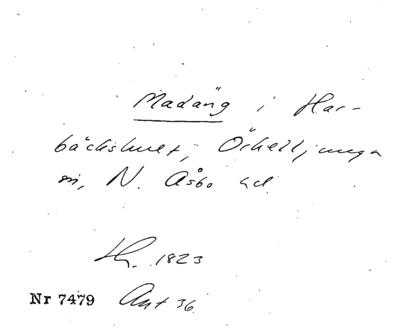 Madäng i Har-
bäckshult, Örkelljunga
sn, N. Åsbo hd
1823
Nr 7479 Ant 36